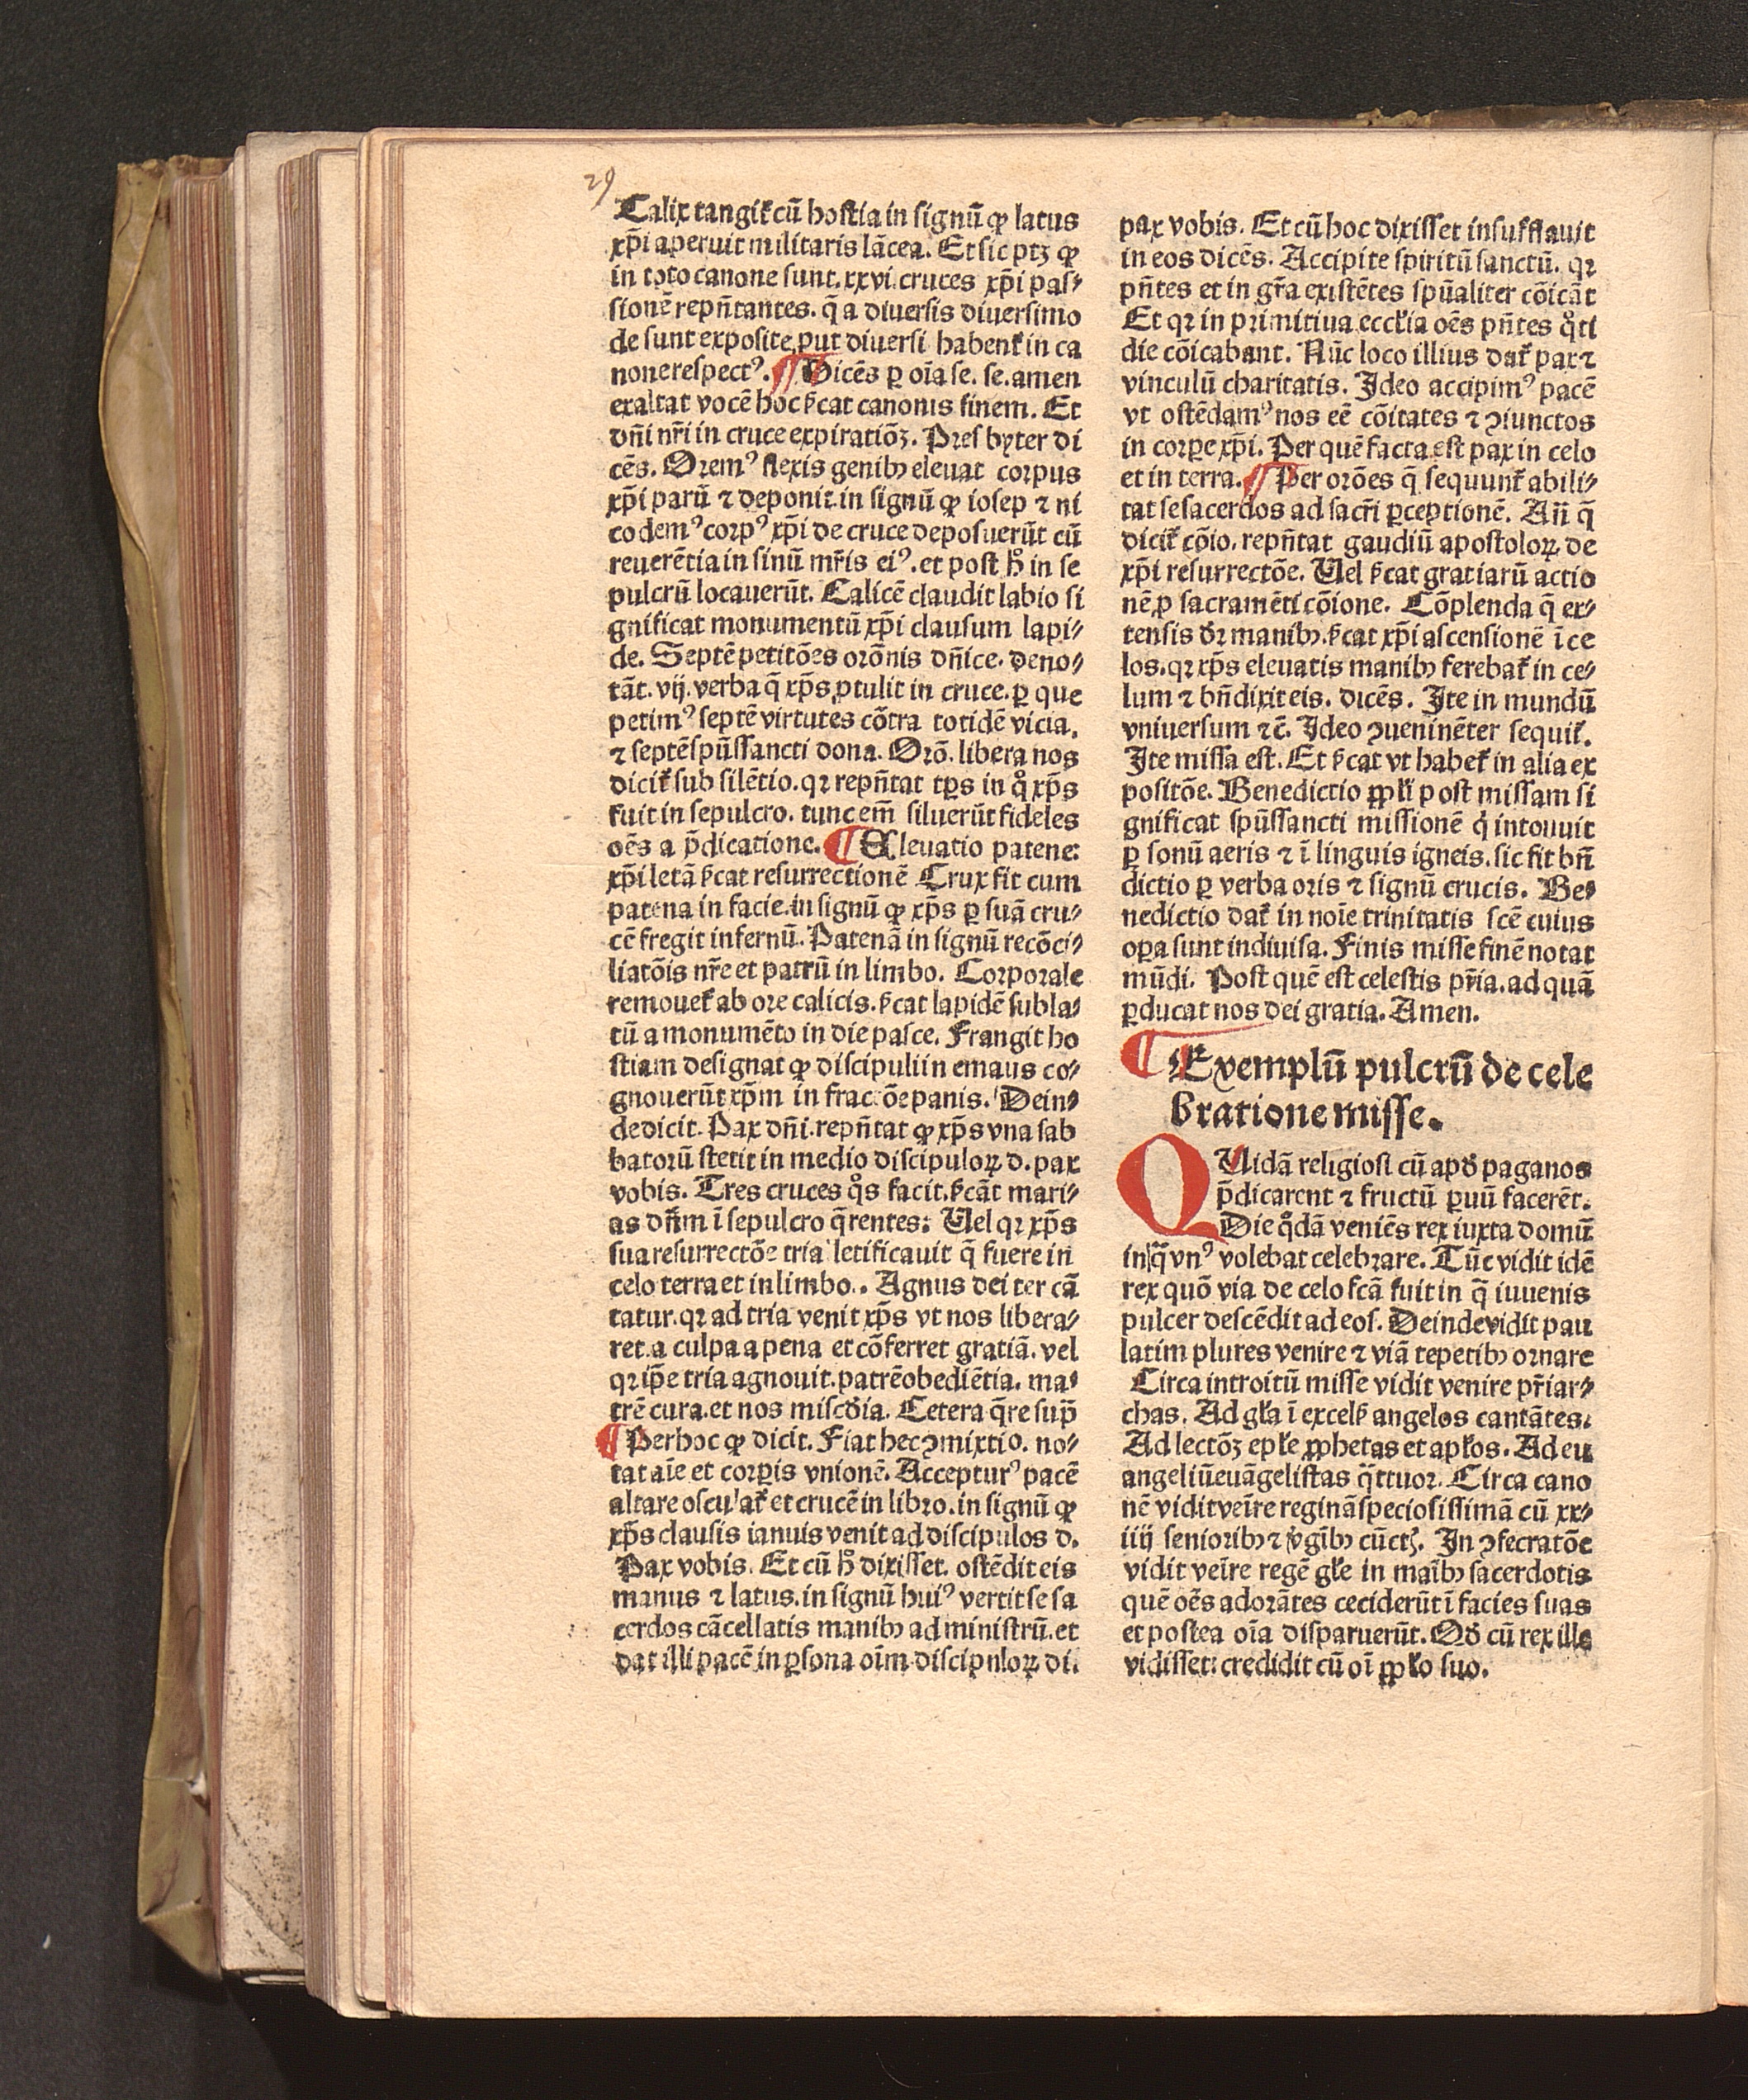 29
Calix tangit᷑ cū hostia in signū ꝙ latus
xp̄i aperuit militaris lācea. Et sic ptꝫ ꝙ
in toto canone sunt. xxvi. cruces xp̄i pas⸗
sionē repn̄tantes. q̄ a diuersis diuersimo
de sunt exposite, put diuersi habent᷑ in ca
none respectꝰ. ¶ Dicēs ꝑ oīa se. se. amen
exaltat vocē hoc ſcat canonis finem. Et
dn̄i nr̄i in cruce expiratiōꝫ. Presbyter di
cēs. Oremꝰ flexis genibꝫ eleuat corpus
xp̄i parū ⁊ deponit. in signū ꝙ iosep ⁊ ni
codemꝰ corpꝰ xp̄i de cruce deposuerūt cū
reuerētia in sinū mr̄is eiꝰ. et post hͦ in se
pulcrū locauerūt. Calicē claudit labio si
gnificat monumentū xp̄i clausum lapi⸗
de. Septē petitōes orōnis dn̄ice. deno⸗
tāt. vij. verba q̄ xp̄s ꝓtulit in cruce. ꝑ que
petimꝰ septē virtutes cōtra totidē vicia.
⁊ septē spūssancti dona. Orō. libera nos
dicit᷑ sub silētio. qꝛ repn̄tat tp̄s in qͦ xp̄s
fuit in sepulcro. tunc em̄ siluerūt fideles
oēs a p̄dicatione. ¶ Eleuatio patene:
xp̄i letā ſcat resurrectionē Crux fit cum
patena in facie. in signū ꝙ xp̄s ꝑ suā cru⸗
cē fregit infernū. Patenā in signū recōci⸗
liatōis nr̄e et patrū in limbo. Corporale
remouet᷑ ab ore calicis. ſcat lapidē subla⸗
tū a monumēto in die pasce. Frangit ho
stiam designat ꝙ discipuli in emaus co⸗
gnouerūt xp̄m in fractōe panis. Dein⸗
de dicit. Pax dn̄i. repn̄tat ꝙ xp̄s vna sab
batorū stetit in medio discipuloꝝ d. pax
vobis. Tres cruces qͦs facit. ſcāt mari⸗
as dn̄m ī sepulcro q̄rentes: Uel qꝛ xp̄s
sua resurrectōe tria letificauit q̄ fuere in
celo terra et in limbo. Agnus dei ter cā
tatur. qꝛ ad tria venit xp̄s vt nos libera⸗
ret. a culpa a pena et cōferret gratiā. vel
qꝛ ip̄e tria agnouit. patrē obediētia. ma⸗
trē cura. et nos misc̄dia. Cetera q̄re sup̄
¶ Per hoc ꝙ dicit. Fiat hec ꝯmixtio. no⸗
tat aīe et corꝑis vnionē. Acceptur⁹ pacē
altare osculat᷑ et crucē in libro. in signū ꝙ
xp̄s clausis ianuis venit ad discipulos d.
Pax vobis. Et cū hͦ dixisset. ostēdit eis
manus ⁊ latus. in signū huiꝰ vertit se sa
cerdos cācellatis manibꝫ ad ministrū. et
dat illi pacē in ꝑsona oīm discipuloꝝ di.
pax vobis. Et cū hoc dixisset insufflauit
in eos dicēs. Accipite spiritū sanctū. qꝛ
pn̄tes et in gr̄a existētes spūaliter cōicāt
Et qꝛ in primitiua eccl̄ia oēs pn̄tes qͦti
die cōicabant. Nūc loco illius dat᷑ pax ⁊
vinculū charitatis. Ideo accipimꝰ pacē
vt ostēdamꝰ nos eē cōitates ⁊ ꝯiunctos
in corꝑe xp̄i. Per quē facta est pax in celo
et in terra. ¶ Per orōes q̄ sequunt᷑ abili⸗
tat se sacerdos ad sacr̄i ꝑceptionē. An̄ q̄
dicit᷑ cōio. repn̄tat gaudiū apostoloꝝ de
xp̄i resurrectōe. Uel ſcat gratiarū actio
nē, ꝓ sacramēti cōione. Cōplenda q̄ ex⸗
tensis dꝛ manibꝫ. ſcat xp̄i ascensionē ī ce
los. qꝛ xp̄s eleuatis manibꝫ ferebat᷑ in ce⸗
lum ⁊ bn̄dixit eis. dicēs. Ite in mundū
vniuersum ⁊c̄. Ideo ꝯueninēter sequit᷑.
Ite missa est. Et ſcat vt habet᷑ in alia ex
positōe. Benedictio ppl̄i post missam si
gnificat spūssancti missionē q̇ intonuit
ꝑ sonū aeris ⁊ ī linguis igneis. sic fit bn̄
dictio ꝑ verba oris ⁊ signū crucis. Be⸗
nedictio dat᷑ in noīe trinitatis scē cuius
oꝑa sunt indiuisa. Finis misse finē notat
mūdi. Post quē est celestis pr̄ia. ad quā
ꝑducat nos dei gratia. Amen.
¶ Exemplū pulcrū de cele
bratione misse.
QUidā religiosi cū apd̄ paganos
p̄dicarent ⁊ fructū ꝑuū facerēt.
Die qͣdā veniēs rex iuxta domū
in q̄ vnꝰ volebat celebrare. Tūc vidit idē
rex quō via de celo fcā fuit in q̄ iuuenis
pulcer descēdit ad eos. Deinde vidit pau
latim plures venire ⁊ viā tepetibꝫ ornare
Circa introitū misse vidit venire pr̄iar⸗
chas. Ad gl̄a ī excelſ angelos cantātes.
Ad lectōꝫ epl̄e ꝓphetas et apl̄os. Ad eu
angeliū euāgelistas qͣttuor. Circa cano
nē vidit veīre reginā speciosissimā cū xx⸗
iiij seniorībꝫ ⁊ v̓gībꝫ cūctꝭ. In ꝯsecratōe
vidit veīre regē gl̄e in maībꝫ sacerdotis
quē oēs adorātes ceciderūt ī facies suas
et postea oīa disparuerūt. Qd̄ cū rex ille
vidisset: credidit cū oī ppl̄o suo.